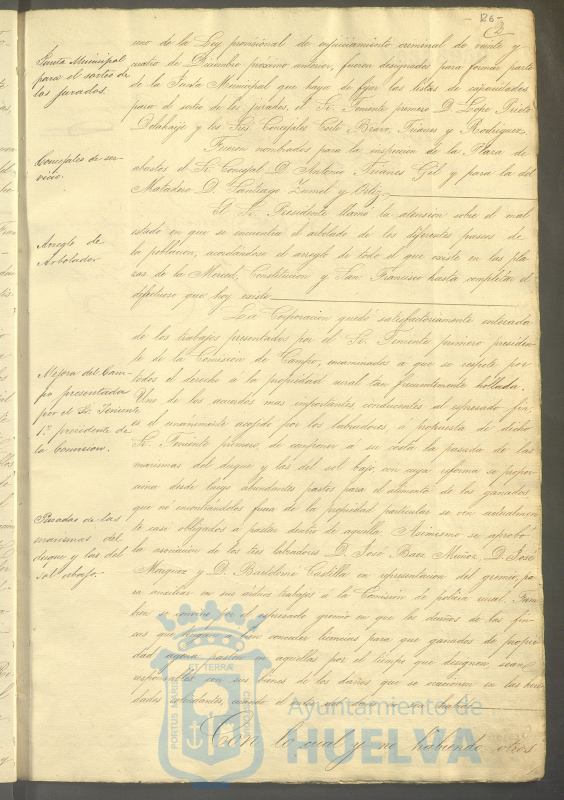 126-
2
Junta Municipal
para el sorteo de
los jurados.
uno de la Ley provisional de enjuiciamiento criminal de veinte y
cuatro de Diciembre próximo anterior, fueron designados para formar parte
de la Junta Municipal que haya de fijar las listas de capacidades
para el sorteo de los jurados, el Sr. Teniente primero D. Lopo Prieto
y los Sres Concejales Coto Bravo, Trianes y Rodriguez.
Concejales de ser-
vicio.
Fueron nombrados para la inspeccion de la Plaza de
abastos el Sr. Concejal D. Antonio Trianes Gil y para la del
Matadero D. Santiago Zumel y Ortiz.
Arreglo de
Arbolados
El Sr. Presidente llamó la atension sobre el mal
estado en que se encuentra el arbolado de los diferentes paseos de
la poblacion, acordandose el arreglo de todo el que existe en las pla-
zas de la Merced, Constitucion y San Francisco hasta completar el
defectuoso que hoy existe
La Corporacion quedó satisfactoriamente enterada
de los trabajos presentados por el Sr. Teniente primero presiden-
te de la Comision de Campo, encaminados á que se respete por
todos el derecho á la propiedad rural tan frecuentemente hollada.
Mejora del Cam-
po presentada
por el Sr. Teniente
1º presidente de
la Comision.
Uno de los acuerdos mas importantes conducentes al espresado fin,
es el unanimente acogido por los labradores, á propuesta de dicho
Sr. Teniente primero, de componer á su costa la parada de las
marismas del duque y las del sol bajo, con cuya reforma se propor-
ciona desde luego abundantes pastos para el alimento de los ganados
que no encontrandolos fuera de la propiedad particular se ven actualmen-
te casi obligados á pastar dentro de aquella. Asimismo se aprobó
Paradas de las
marismas del
duque y las del
sol abajo.
la asociacion de los tres labradores D. José Baez Muñoz, D. José
Marquez y D. Bartolomé Castilla en representacion del gremio, pa-
ra auxiliar en sus arduos trabajos á la Comision de policia rural. Tam-
bien se convino con el espresado gremio en que los dueños de las fin-
cas que tengan á bien conceder licencias para que ganados de propie-
dad agena pasten en aquellas por el tiempo que designen, sean
responsables con sus bienes de los daños que se ocasionen en las here-
dades colindantes, cuando el autor
Con lo cual y no habiendo otros
PORTUS MARIS
ET TERRÆ
CUSTODIA
Ayuntamiento de
HUELVA